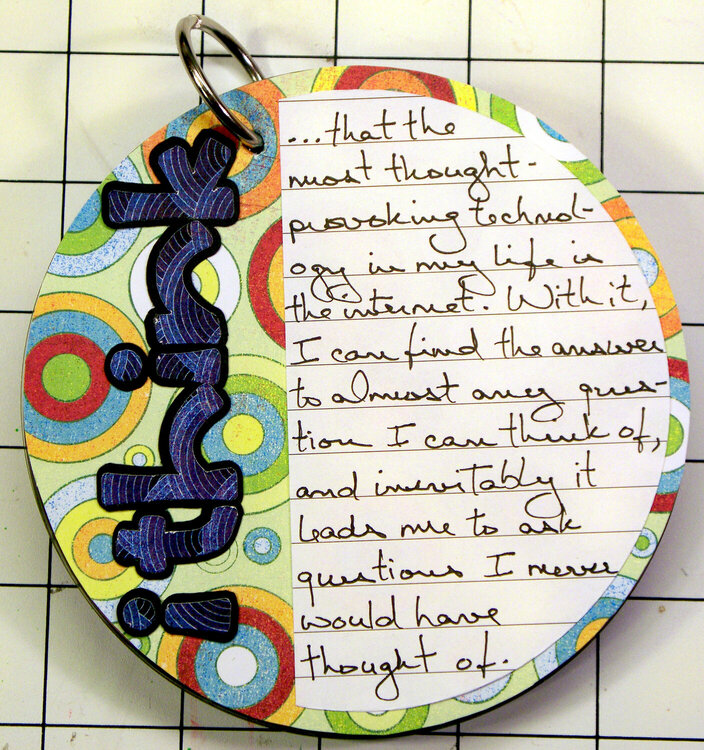 i think
...that the
most thought-
provoking technol-
ogy in my life is
the internet. With it,
I can find the answer
to almost any ques-
tion I can think of,
and inevitably it
leads me to ask
questions I never
would have
thought of.